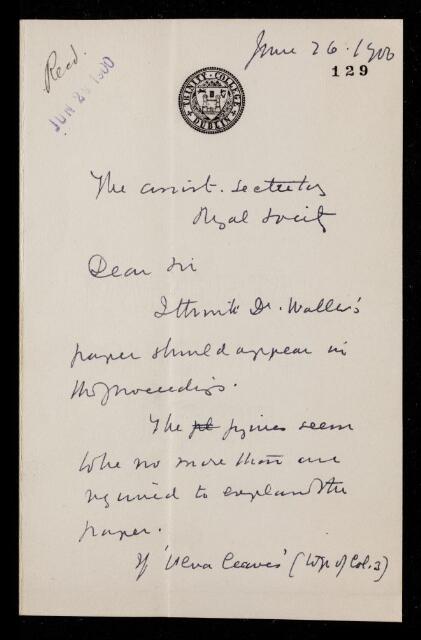 June 26. 1900
Recd.
JUN 28 1900
129
TRINITY COLLEGE DUBLIN
The assist. secretary
Royal Society
Dear Sir
I think Dr. Waller's
paper should appear in
the Proceedings.
The figures seem
to be no more than are
required to explain the
paper.
If 'Vena Leaves' (top of Col. 3)